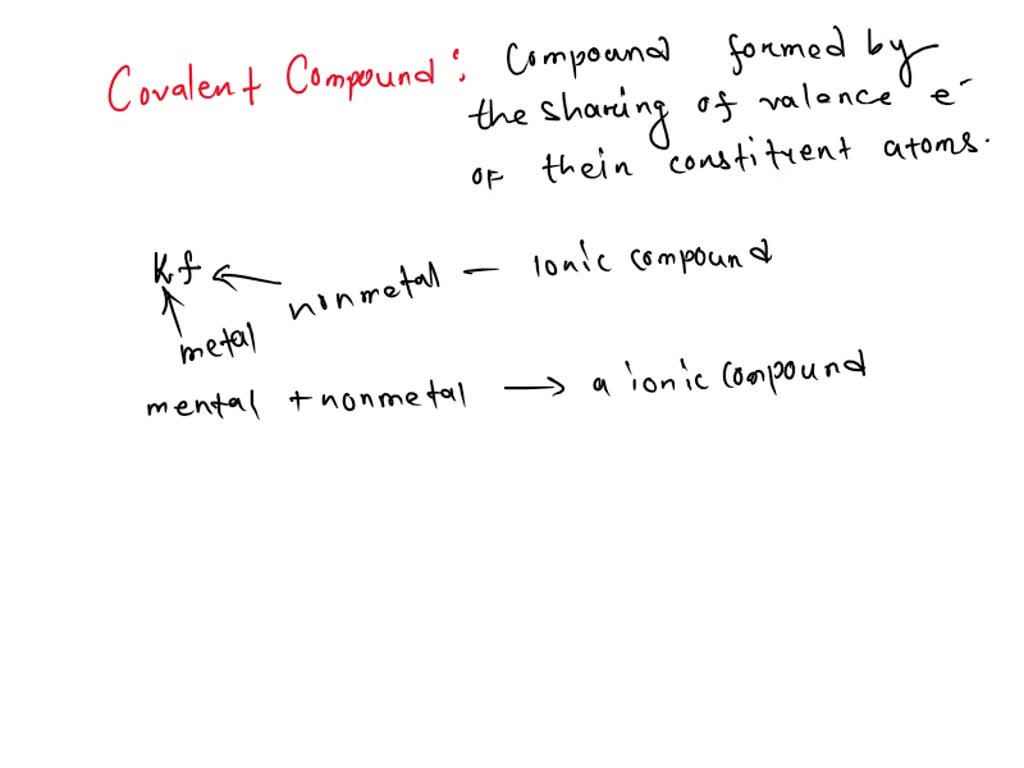 Covalent Compound : Compound formed by
the sharing of valence e⁻
of thein constituent atoms.
Kf ← nonmetal — ionic compound
metal
mental + nonmetal → a ionic compound